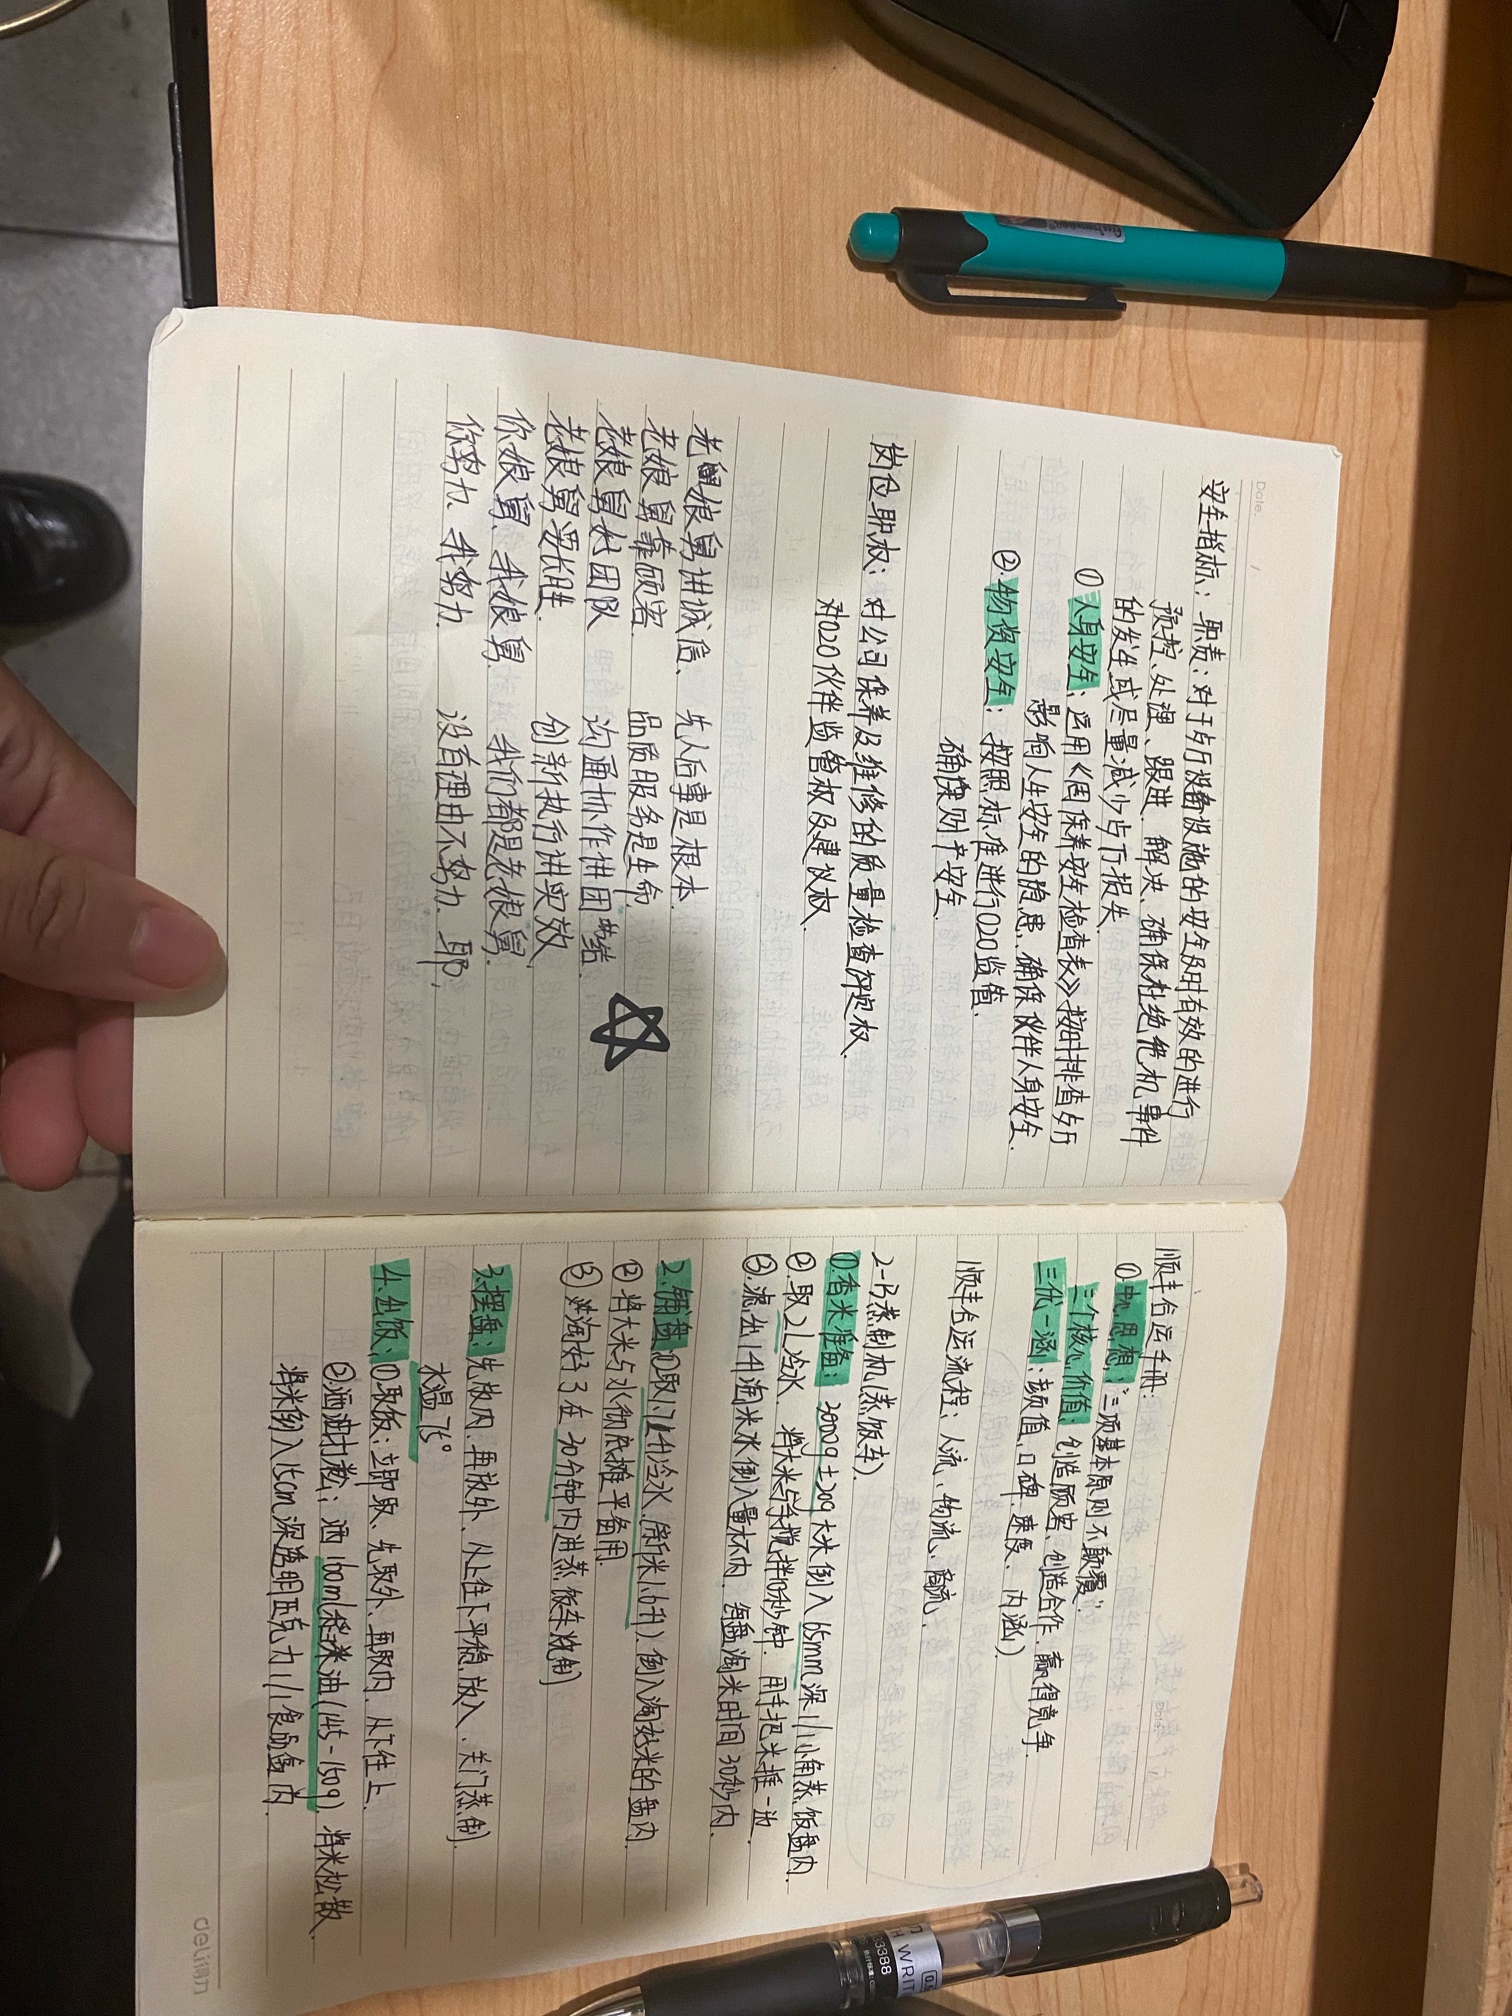 Date. /
安全指标：职责：对于夕厅设备设施的安全及时有效的进行
预控、处理、跟进、解决、确保杜绝危机事件
的发生或尽量减少夕厅损失.
① 人身安全：运用《周保养安全检查表》按时排查夕厅
影响人生安全的隐患、确保伙伴人身安全.
②.物资安全：按照标准进行O2O监值.
确保财产安全.
岗位职权：对公司保养及维修的质量检查评定权.
对O2O伙伴监管权及建议权.
老娘舅讲诚信、 先人后事是根本.
老娘舅靠顾客. 品质服务是生命.
老娘舅好团队 沟通协作讲团结.
老娘舅要长胜. 创新执行讲实效.
你娘舅、我娘舅. 我们都是老娘舅.
你努力、我努力. 没有理由不努力. 耶.
顺丰合运手册：
①.思想：“三项基本原则不颠覆”.
三个核心价值：创造顾客、创造合作、赢得竞争.
三优一涵：颜值、口碑、速度、内涵）
顺丰合运流程：人流、物流、商流.
2-13蒸制机（蒸饭车）.
①.香米准备：3000g±20g大米倒入65mm深1/1小角蒸饭盘内.
②.取2L冷水、将大米与手搅拌10秒钟. 用手把米推一边.
③.滤出1.4l淘米水倒入量杯内. 每盘淘米时间30秒内.
2.铺盘①取1.7L(升)冷水.(新米1.6升).倒入淘好米的盘内.
② 将大米与水彻底摊平备用.
③ 淘好了在30分钟内进蒸饭车烧制
3.摆盘：先放内、再放外、从上往下平稳放入. 关门蒸制.
水温75°
4.出饭：①取饭：立即取、先取外、再取内、从下往上.
②.洒油打松：洒160ml稻米油（145-150g）将米松散.
将米倒入15cm深透明亚克力1/1食品盒内.
deli得力
33388